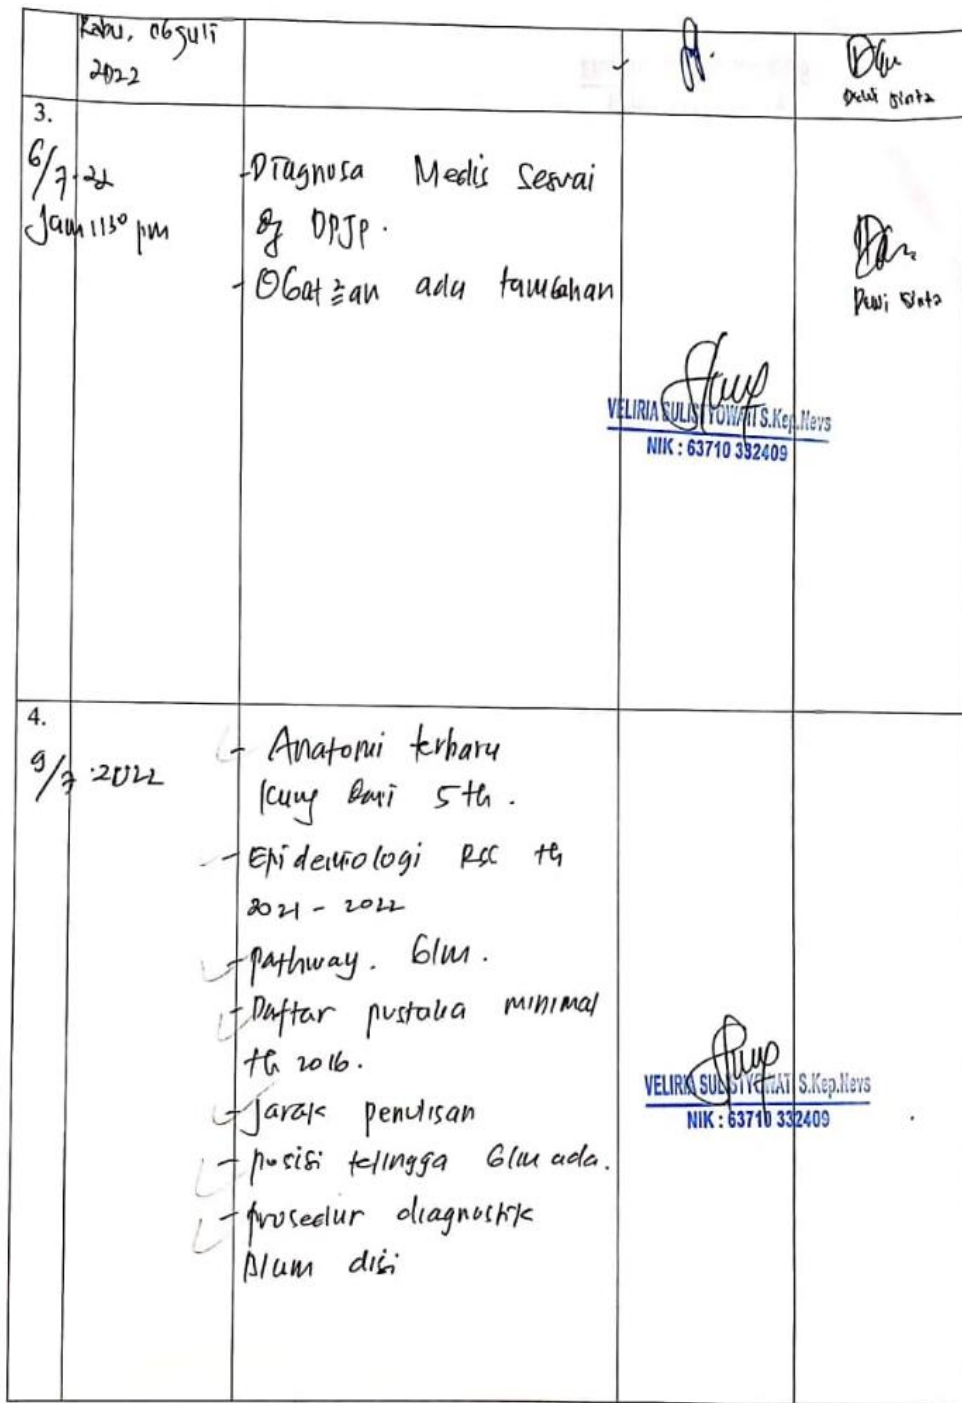 Rabu, 06 Juli
2022
Dewi Sinta
3.
6/7-22
Jam 1130 pm
- Diagnosa Medis Sesuai
dg DPJP.
- Obat²an ada tambahan
Dewi Sinta
VELIRIA SULISTYOWATI S.Kep.Ners
NIK : 63710 332409
4.
9/7.2022
- Anatomi terbaru
kurg dari 5 th.
- Epidemiologi RSC th
2021 - 2022
- pathway. blm.
- Daftar pustaka minimal
th 2016.
- Jarak penulisan
- posisi telingga blm ada.
- prosedur diagnostik
Blum disi
VELIRIA SULISTYOWATI S.Kep.Ners
NIK : 63710 332409